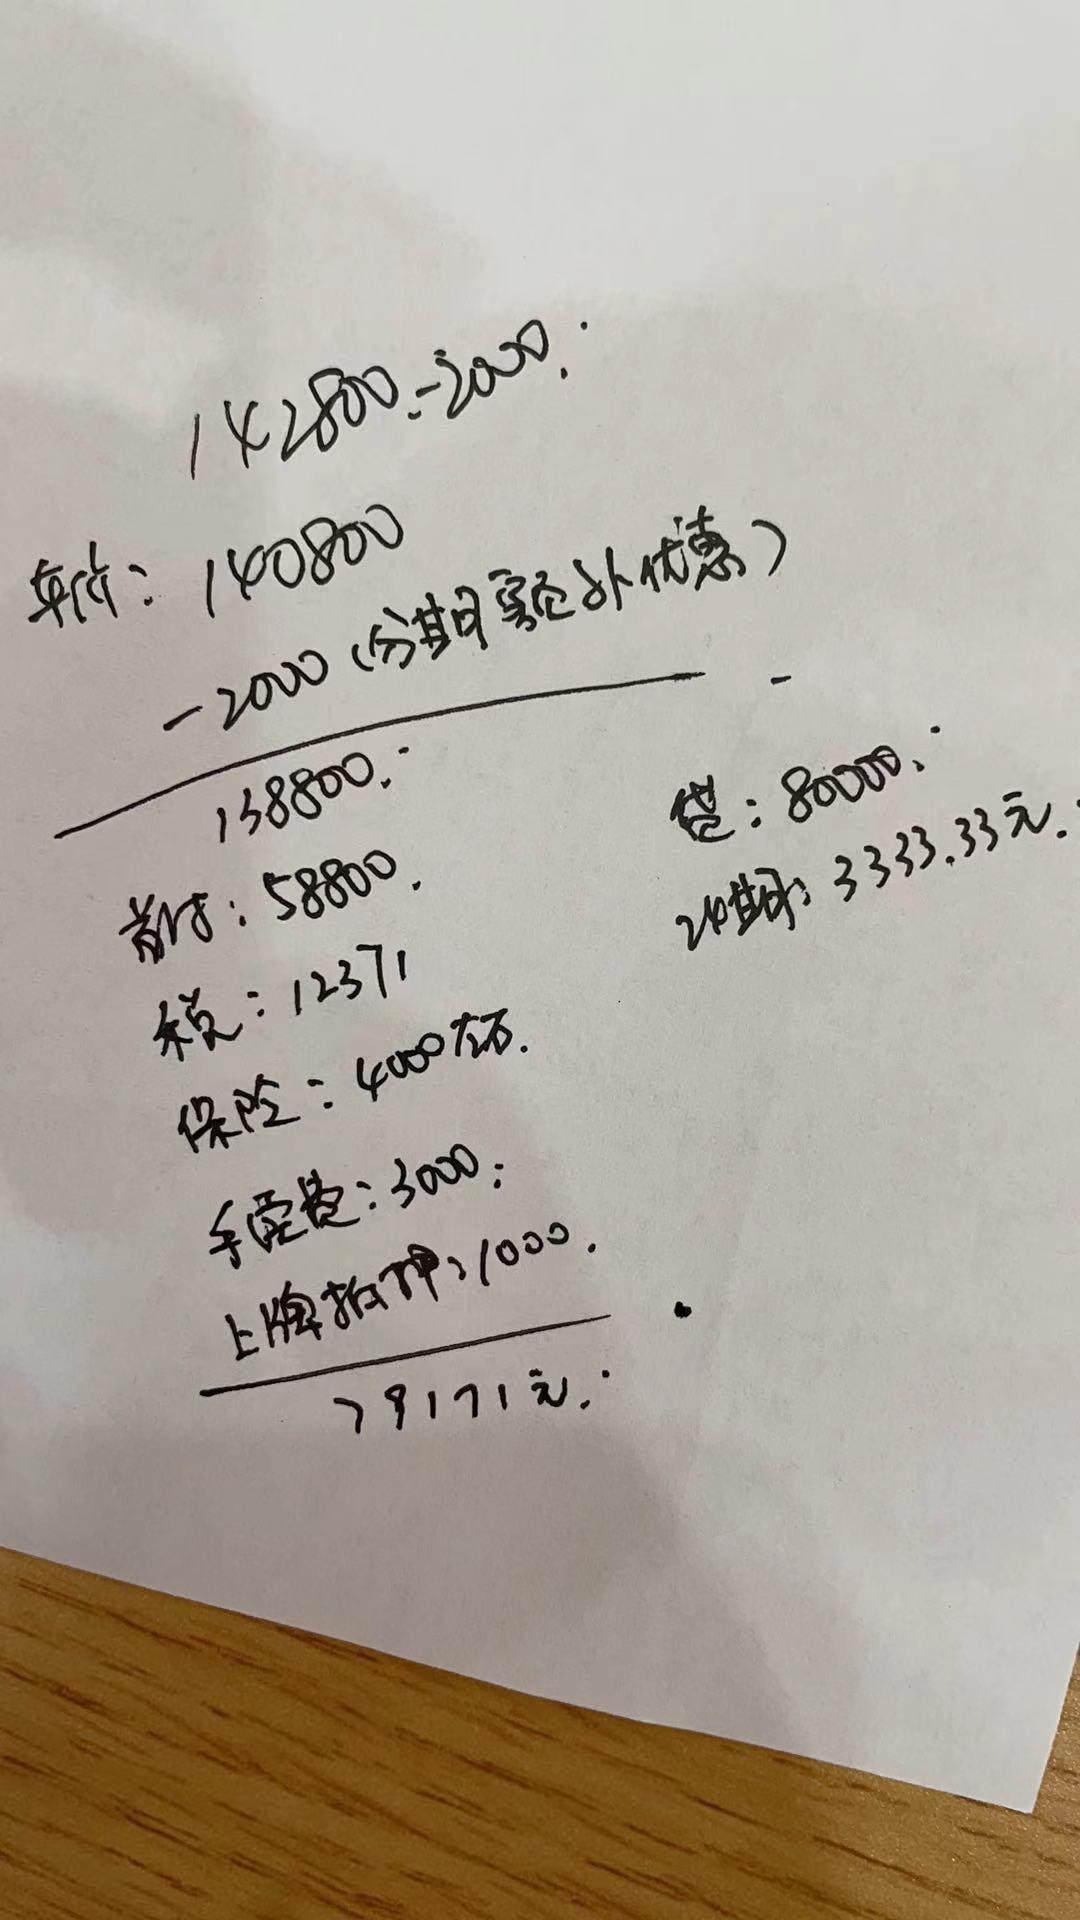 142800.-2000.
车价: 140800
-2000 (分期置换外优惠)
138800.
首付: 58800.
税: 12371
保险: 4000左右.
手续费: 3000.
上牌抵押: 1000.
79171元.
贷: 80000.
24期: 3333.33元.